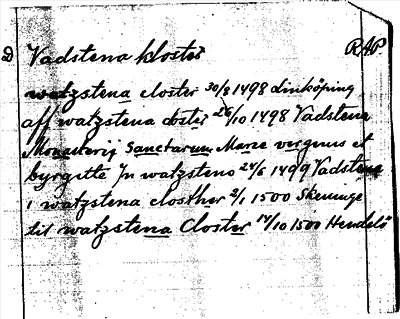 D Vadstena kloster RAP.
watzstena closter 30/8 1498 Linköping
aff watzstena closter 26/10 1498 Vadstena
Monasterij Sanctarum Marie virginis et
byrgitte Jn watzsteno 24/6 1499 Vadstena
i watzstena closther 2/1 1500 Skeninge
til watzstena Closter 14/10 1500 Hendelö